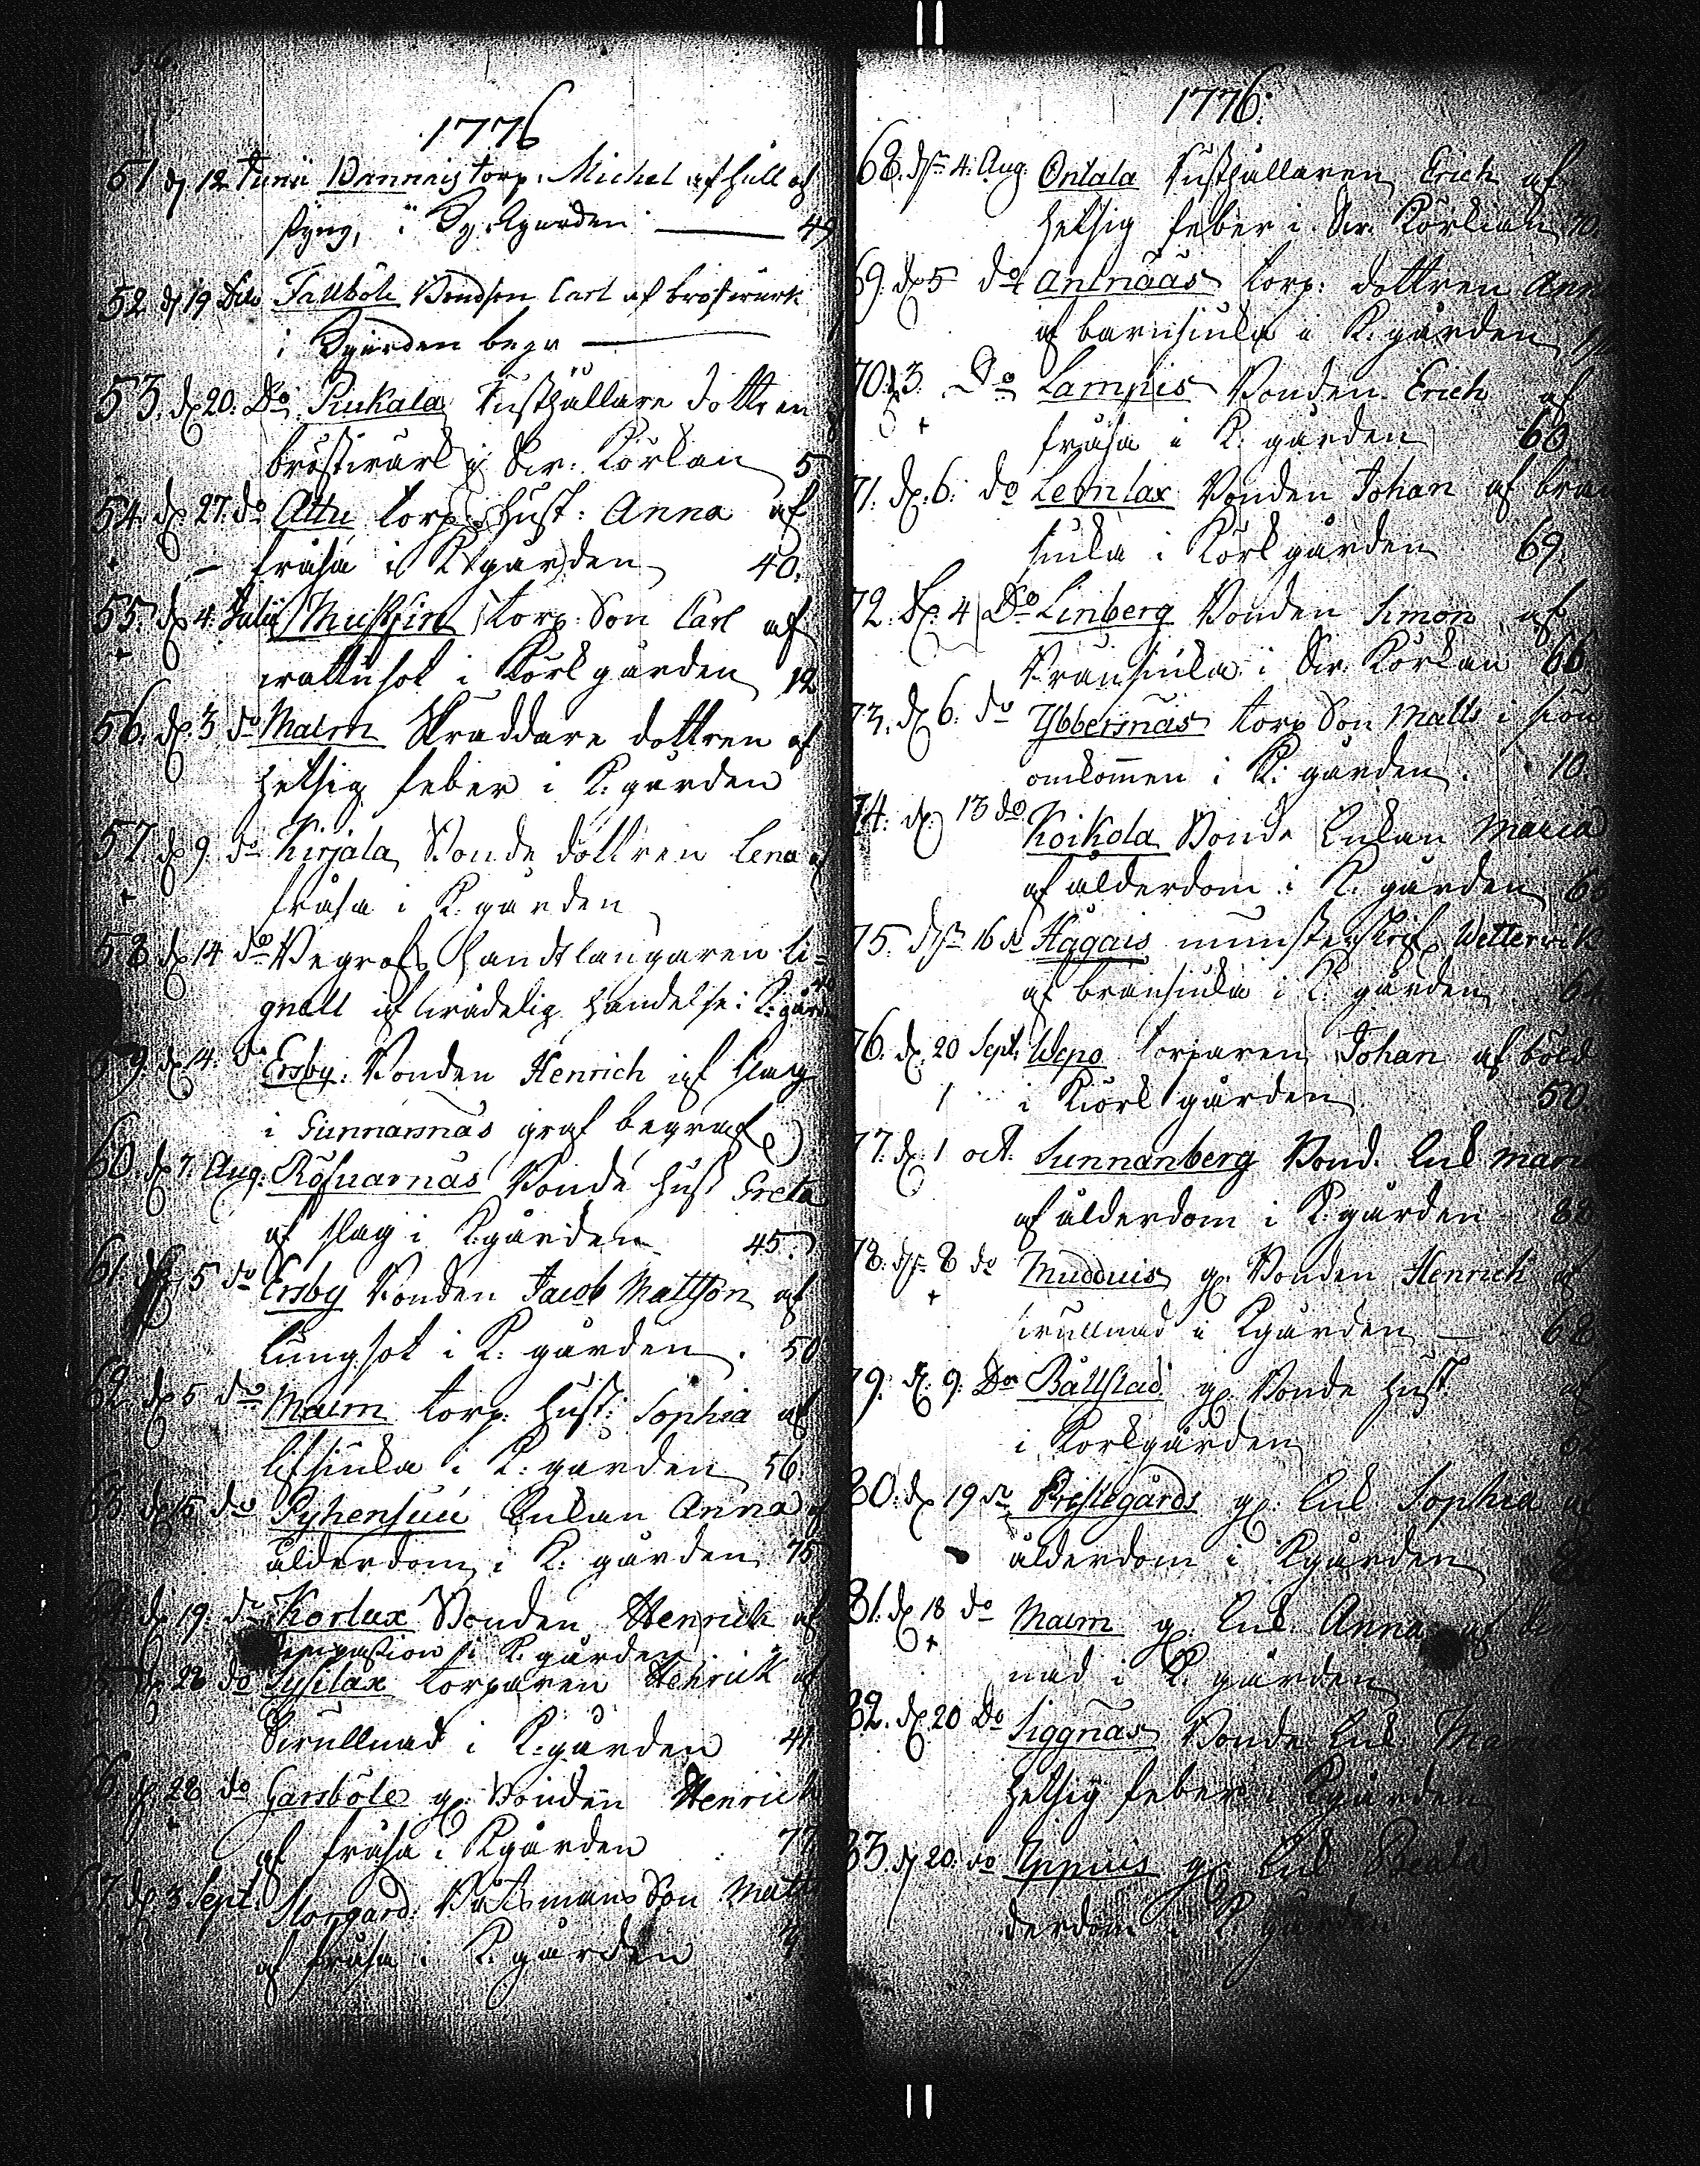 1776
51 d 12 Junii Vannais torp. Michel af håll og
styng, i Kyrkgården 49
52 d 19 dito Tallböle Bondson Carl af bröstwärk
i Kgården begr
53. d. 20. Do Piukala Rusthållare dottren
bröstwärk i St. Körkan 5
54. d. 27. do Attu torp. Hust: Anna af
fråsa i K.gården 40.
55. d. 4. Julii Muskfin torp. Son Carl af
wattusot i Körkgården 12
56. d. 3 do Malm Skräddare dottren af
hetsig feber i K: gården
57 d. 9. do Kirjala Bonde döttren Lena af
fråsa i K. gården
58 d. 14 do Handtlangaren Li=
gnell af wådelig händelse i K: gård
59. d. 14. do Ersby. Bonden Henrich af slag
i Sunnannäs graf begraf
60. d. 7. Aug. Röfuarnäs Bonde hust Greta
af slag i Kgården 45.
61. d. 5 do Ersby Bonden Jacob Mattson af
lungsot i K: gården. 50
62. d. 5 do Malm torp. Hust: Sophia af
lifsiuka i K: gården 56.
63. d. 15 do Pyhensuu Enkan Anna af
ålderdom i K: gården 75
d. 19. do Korlax Bonden Henrich af
i K: gården
d. 28 do Sysilax torparen Hehrich af
Swullnad i K: gården 41
66. d. 28 do Garsböle g. Bonden Henrich
af fråsa i Kgården 77
67. d. 3 Sept. Storgård Båtsmans Son Matts
af fråsa i K: gården
1776.
68. d. 4. Aug. Ontala Rusthållaren Erich af
hetsig feber i St. Körkian 70
69. d. 5 do Antnääs torp: dottren Anna
af barnsiuka i K: gården
70. d. 3. Do Lampis Bonden Erich af
fråsa i K: gården 60
71. d. 6. do Lemlax Bonden Johan af brän
siuka i Körkgården 69.
72. d. 4 Do Linberg Bonden Simon af
Brännsiuka i St. Körkan 66
73. d. 6. do Ybbersnäs torp Son Matts i siön
omkommen i K: gården. 10.
74. d. 13 do Koikola Bonde Enkan Maria
af ålderdom i K: gården 6
75. d. 16 do Häggais Wetterwik
af bränsiuka i K: gården 6
76. d. 20 Sept. Wepo torparen Johan af böld
i Kiörkgården 50.
77. d. 1 oct. Sunnanberg Bond. Enk Maria
af ålderdom i K: gården 8
78. d. 8 do Mudduis g. Bonden Henrich af
swullnad i Kgården 68
79. d. 9. Do Bällstad g. Bonde Hust. af
i Körkgården
80. d. 19 do Prestegårds g. Enk Sophia af
ålderdom i Kgården
81. d. 18 do Malm g. Enk. Anna af
nad i K: gården
82. d. 20 Do Siggnäs Bonde Enk. Ma
hetsig feber i Kgården
83. d. 20. do Yppuis g. Enk Beata
derdom i K: gården